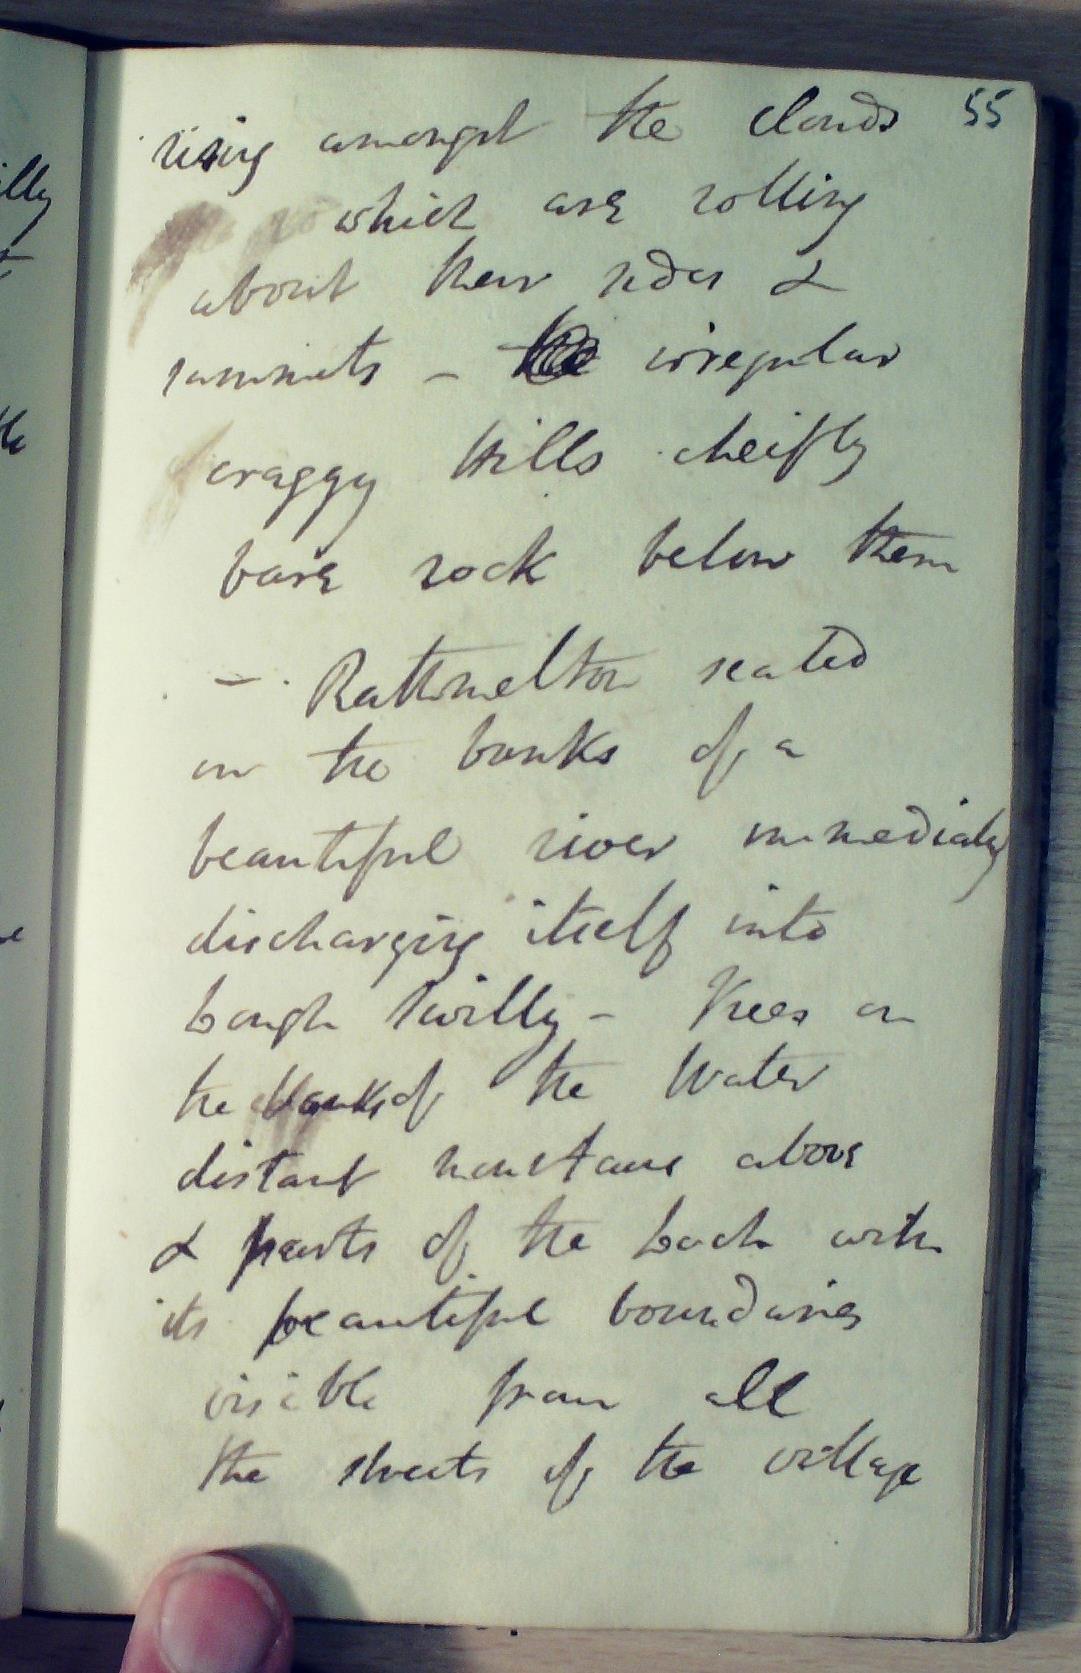 55
rising amongst the clouds
which are rolling
about their sides &
summits - the irregular
craggy hills cheifly
bare rock below them
- Rathmelton seated
on the banks of a
beautiful river immediatly
discharging itself into
Lough Swilly - Trees on
the banks of the Water
distant mountains above
& parts of the Loch with
its beautiful boundaries
visible from all
the streets of the village
illy
the